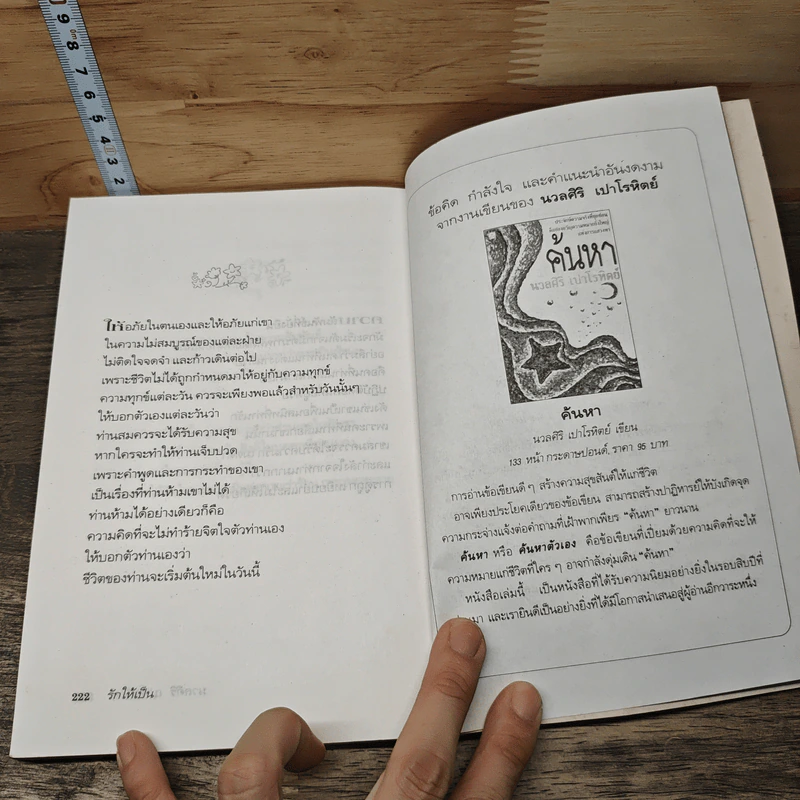 9 8 7 6 5 4 3 2
ให้อภัยในตนเองและให้อภัยแก่เขา
ในความไม่สมบูรณ์ของแต่ละฝ่าย
ไม่ติดใจจดจำ และก้าวเดินต่อไป
เพราะชีวิตไม่ได้ถูกกำหนดมาให้อยู่กับความทุกข์
ความทุกข์แต่ละวัน ควรจะเพียงพอแล้วสำหรับวันนั้นๆ
ให้บอกตัวเองแต่ละวันว่า
ท่านสมควรจะได้รับความสุข
หากใครจะทำให้ท่านเจ็บปวด
เพราะคำพูดและการกระทำของเขา
เป็นเรื่องที่ท่านห้ามเขาไม่ได้
ท่านห้ามได้อย่างเดียวก็คือ
ความคิดที่จะไม่ทำร้ายจิตใจตัวท่านเอง
ให้บอกตัวท่านเองว่า
ชีวิตของท่านจะเริ่มต้นใหม่ในวันนี้
222 รักให้เป็น
ข้อคิด กำลังใจ และคำแนะนำอันงดงาม
จากงานเขียนของ นวลศิริ เปาโรหิตย์
ค้นหา
นวลศิริ เปาโรหิตย์
ค้นหา
นวลศิริ เปาโรหิตย์ เขียน
133 หน้า กระดาษปอนด์, ราคา 95 บาท
การอ่านข้อเขียนดี ๆ สร้างความสุขสันต์ให้แก่ชีวิต
อาจเพียงประโยคเดียวของข้อเขียน สามารถสร้างปาฏิหารย์ให้บังเกิดจุด
ความกระจ่างแจ้งต่อคำถามที่เฝ้าพากเพียร "ค้นหา" ยาวนาน
ค้นหา หรือ ค้นหาตัวเอง คือข้อเขียนที่เปี่ยมด้วยความคิดที่จะให้
ความหมายแก่ชีวิตที่ใคร ๆ อาจกำลังดุ่มเดิน "ค้นหา"
หนังสือเล่มนี้ เป็นหนังสือที่ได้รับความนิยมอย่างยิ่งในรอบสิบปีที่
มา และเรายินดีเป็นอย่างยิ่งที่ได้มีโอกาสนำเสนอสู่ผู้อ่านอีกวาระหนึ่ง